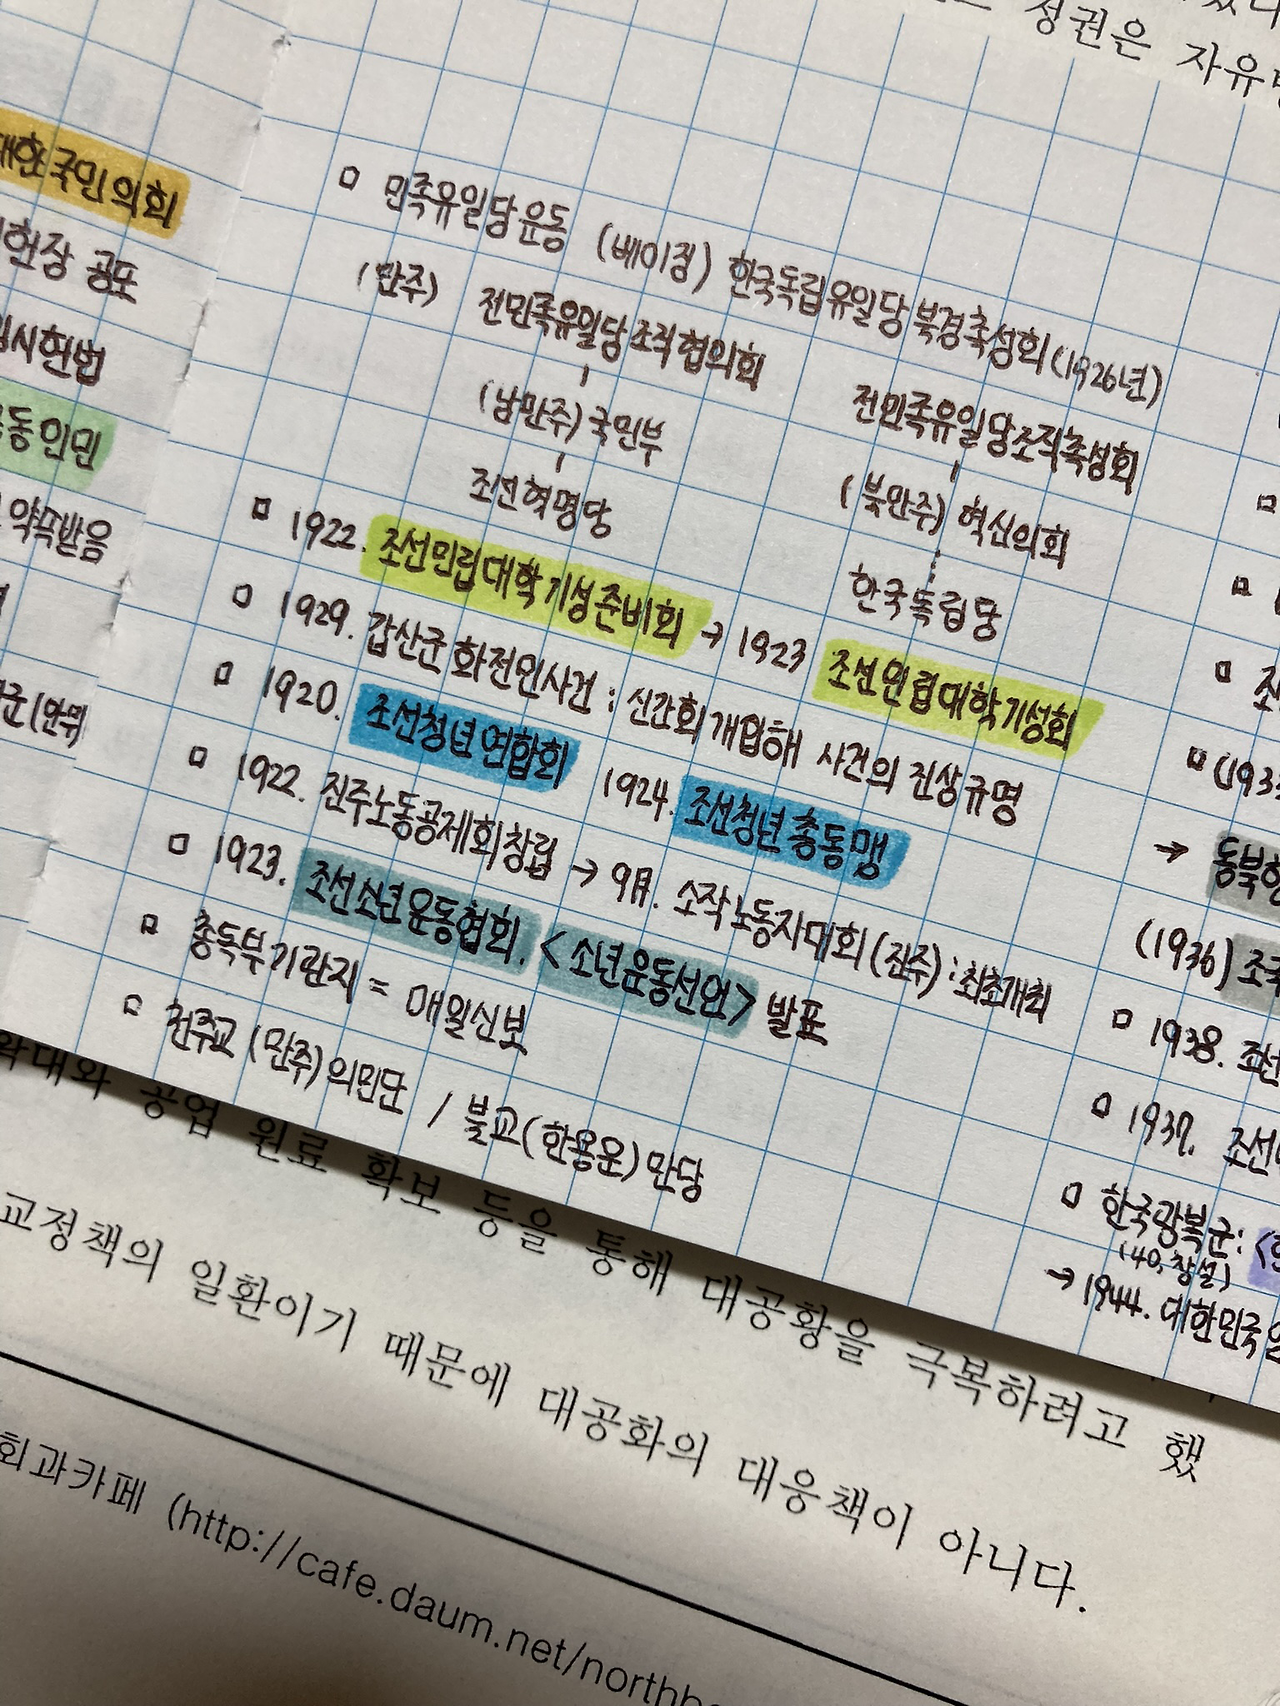 정권은 자유
대한국민의회
헌장 공포
임시헌법
동인민
약속받음
□ 민족유일당운동 (베이징) 한국독립유일당북경촉성회(1926년)
(만주) 전민족유일당조직협의회
전민족유일당조직촉성회
(남만주) 국민부
(북만주) 혁신의회
조선혁명당
한국독립당
□ 1922. 조선민립대학기성준비회 → 1923 조선민립대학기성회
□ 1929. 갑산군 화전민사건 : 신간회 개입해 사건의 진상규명
□ 1920. 조선청년연합회 1924. 조선청년총동맹
□ 1922. 진주노동공제회창립 → 9月. 소작노동자대회(진주) : 최초개최
□ 1923. 조선소년운동협회. <소년운동선언> 발표
□ 총독부기관지 = 매일신보
□ 천주교 (만주) 의민단 / 불교(한용운) 만당
(193
→ 동북항
(1936) 조국
□ 1938. 조선
□ 1937. 조선
□ 한국광복군:
(40, 창설)
→ 1944. 대한민국
공업 원료 확보 등을 통해 대공황을 극복하려고 했
교정책의 일환이기 때문에 대공화의 대응책이 아니다.
회과카페 (http://cafe.daum.net/northb